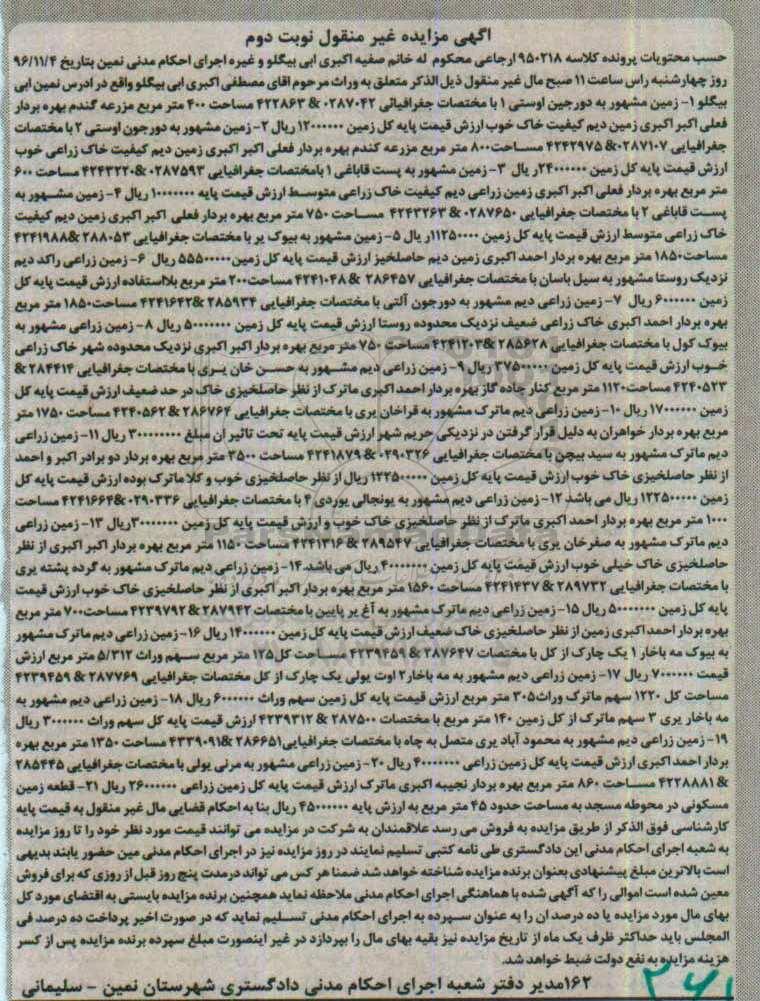 آگهی مزایده غیر منقول نوبت دوم
حسب محتویات پرونده کلاسه ۹۵۰۲۱۸ ارجاعی محکوم له خانم صفیه اکبری ابی بیگلو و غیره اجرای احکام مدنی نمین بتاریخ ۹۶/۱۱/۴
روز چهارشنبه راس ساعت ۱۱ صبح مال غیر منقول ذیل الذکر متعلق به وراث مرحوم اقای مصطفی اکبری ابی بیگلو واقع در ادرس نمین ابی
بیگلو ۱- زمین مشهور به دورجین اوستی ۱ با مختصات جغرافیائی ۰۲۸۷۰۴۲ & ۴۲۲۸۶۳ مساحت ۴۰۰ متر مربع مزرعه گندم بهره بردار
فعلی اکبر اکبری زمین دیم کیفیت خاک خوب ارزش قیمت پایه کل زمین ۱۲۰۰۰۰۰۰ ریال ۲- زمین مشهور به دورجون اوستی ۲ با مختصات
جغرافیایی ۰۲۸۷۱۰۷& ۴۲۴۲۹۷۵ مساحت۸۰۰ متر مربع مزرعه گندم بهره بردار فعلی اکبر اکبری زمین دیم کیفیت خاک زراعی خوب
ارزش قیمت پایه کل زمین ۲۴۰۰۰۰۰۰ر یال ۳- زمین مشهور به پست قاباغی ۱ بامختصات جغرافیایی ۰۲۸۷۵۹۳ &۴۲۴۳۲۲۰ مساحت ۶۰۰
متر مربع بهره بردار فعلی اکبر اکبری زمین زراعی دیم کیفیت خاک زراعی متوسط ارزش قیمت پایه ۱۰۰۰۰۰۰۰ ریال ۴- زمین مشهور به
پست قاباغی ۲ با مختصات جغرافیایی ۰۲۸۷۶۵۰ & ۴۲۴۳۲۶۳ مساحت ۷۵۰ متر مربع بهره بردار فعلی اکبر اکبری زمین دیم کیفیت
خاک زراعی متوسط ارزش قیمت پایه کل زمین ۱۱۲۵۰۰۰۰ریال ۵- زمین مشهور به بیوک یر با مختصات جغرافیایی ۲۸۸۰۵۳ &۴۲۴۱۹۸۸
مساحت۱۸۵۰ متر مربع بهره بردار احمد اکبری زمین دیم حاصلخیز ارزش قیمت پایه کل زمین۵۵۵۰۰۰۰۰ ریال ۶- زمین زراعی راکد دیم
نزدیک روستا مشهور به سیل باسان با مختصات جغرافیایی ۲۸۶۴۵۷ & ۴۲۴۱۰۴۸ مساحت۲۰۰ متر مربع بلااستفاده ارزش قیمت پایه کل
زمین ۶۰۰۰۰۰۰ ریال ۷- زمین زراعی دیم مشهور به دورجون آلتی با مختصات جغرافیایی ۲۸۵۹۳۴ &۴۲۴۱۶۴۲ مساحت۱۸۵۰ متر مربع
بهره بردار احمد اکبری خاک زراعی ضعیف نزدیک محدوده روستا ارزش قیمت پایه کل زمین ۵۰۰۰۰۰۰۰ ریال ۸- زمین زراعی مشهور به
بیوک کول با مختصات جغرافیایی ۲۸۵۶۲۸ &۴۲۴۱۲۰۳ مساحت ۷۵۰ متر مربع بهره بردار اکبر اکبری نزدیک محدوده شهر خاک زراعی
خوب ارزش قیمت پایه کل زمین ۳۷۵۰۰۰۰۰ ریال ۹- زمین زراعی دیم مشهور به حسن خان یری با مختصات جغرافیایی ۲۸۴۴۱۴ &
۴۲۴۰۵۲۳ مساحت۱۱۲۰ متر مربع کنار جاده گاز بهره بردار احمد اکبری ماترک از نظر حاصلخیزی خاک در حد ضعیف ارزش قیمت پایه کل
زمین ۱۷۰۰۰۰۰۰ ریال ۱۰- زمین زراعی دیم ماترک مشهور به قراخان یری با مختصات جغرافیایی ۲۸۶۷۶۴ & ۴۲۴۰۵۶۲ مساحت ۱۷۵۰ متر
مربع بهره بردار خواهران به دلیل قرار گرفتن در نزدیکی حریم شهر ارزش قیمت پایه تحت تاثیر ان مبلغ ۳۰۰۰۰۰۰۰ ریال ۱۱- زمین زراعی
دیم ماترک مشهور به سید بیجن با مختصات جغرافیایی ۰۲۹۰۳۲۶ & ۴۲۴۱۸۷۹ مساحت ۳۵۰۰ متر مربع بهره بردار دو برادر اکبر و احمد
از نظر حاصلخیزی خاک خوب ارزش قیمت پایه کل زمین ۱۲۲۵۰۰۰۰۰ ریال از نظر حاصلخیزی خوب و کلا ماترک بوده ارزش قیمت پایه کل
زمین ۱۲۲۵۰۰۰۰۰ ریال می باشد ۱۲- زمین زراعی دیم مشهور به یونجالی یوردی ۴ با مختصات جغرافیایی ۰۲۹۰۳۳۶ &۴۲۴۱۶۶۴ مساحت
۱۰۰۰ متر مربع بهره بردار احمد اکبری ماترک از نظر حاصلخیزی خاک خوب و ارزش قیمت پایه کل زمین ۳۰۰۰۰۰۰۰ریال ۱۳- زمین زراعی
دیم ماترک مشهور به صفرخان یری با مختصات جغرافیایی ۲۸۹۵۴۷ & ۴۲۴۱۳۱۶ مساحت ۱۱۵۰ متر مربع بهره بردار اکبر اکبری از نظر
حاصلخیزی خاک خیلی خوب ارزش قیمت پایه کل زمین ۴۰۰۰۰۰۰۰ ریال می باشد. ۱۴- زمین زراعی دیم ماترک مشهور به گرده پشته یری
با مختصات جغرافیایی ۲۸۹۷۳۲ & ۴۲۴۱۴۳۷ مساحت ۱۵۶۰ متر مربع بهره بردار اکبر اکبری از نظر حاصلخیزی خاک خوب ارزش قیمت
پایه کل زمین ۵۰۰۰۰۰۰۰ ریال ۱۵- زمین زراعی دیم ماترک مشهور به آغ یر پایین با مختصات ۲۸۷۹۴۲ & ۴۲۳۹۷۹۲ مساحت۷۰۰ متر مربع
بهره بردار احمد اکبری زمین از نظر حاصلخیزی خاک ضعیف ارزش قیمت پایه کل زمین ۱۴۰۰۰۰۰۰ ریال ۱۶- زمین زراعی دیم ماترک مشهور
به بیوک مه باخار ۱ یک چارک از کل با مختصات ۲۸۷۶۴۷ & ۴۲۳۹۴۵۹ مساحت کل۱۲۵ متر مربع سهم وراث ۵/۳۱۲ متر مربع ارزش
قیمت ۷۰۰۰۰۰۰ ریال ۱۷- زمین زراعی دیم مشهور به مه باخار۲ اوت یولی یک چارک از کل مختصات جغرافیایی ۲۸۷۷۶۹ & ۴۲۳۹۴۵۹
مساحت کل ۱۲۲۰ سهم ماترک وراث۳۰۵ متر مربع ارزش قیمت پایه کل زمین سهم وراث ۶۰۰۰۰۰۰ ریال ۱۸- زمین زراعی دیم مشهور به
مه باخار یری ۳ سهم ماترک از کل زمین ۱۴۰ متر مربع با مختصات ۲۸۷۵۰۰ & ۴۲۳۹۳۱۲ ارزش قیمت پایه کل سهم وراث ۳۰۰۰۰۰۰ ریال
۱۹- زمین زراعی دیم مشهور به محمود آباد یری متصل به چاه با مختصات جغرافیایی۲۸۶۶۵۱ &۴۲۳۹۰۹۱ مساحت ۱۳۵۰ متر مربع بهره
بردار احمد اکبری ارزش قیمت پایه کل زمین زراعی ۴۰۰۰۰۰۰۰ ریال ۲۰- زمین زراعی مشهور به مرنی یولی با مختصات جغرافیایی ۲۸۵۴۴۵
& ۴۲۲۸۸۸۱ مساحت ۸۶۰ متر مربع بهره بردار نجیبه اکبری ماترک ارزش قیمت پایه کل زمین زراعی ۲۶۰۰۰۰۰۰ ریال ۲۱- قطعه زمین
مسکونی در محوطه مسجد به مساحت حدود ۴۵ متر مربع به ارزش پایه ۴۵۰۰۰۰۰۰ ریال بنا به احکام قضایی مال غیر منقول به قیمت پایه
کارشناسی فوق الذکر از طریق مزایده به فروش می رسد علاقمندان به شرکت در مزایده می توانند قیمت مورد نظر خود را تا روز مزایده
به شعبه اجرای احکام مدنی این دادگستری طی نامه کتبی تسلیم نمایند در روز مزایده نیز در اجرای احکام مدنی مین حضور یابند بدیهی
است بالاترین مبلغ پیشنهادی بعنوان برنده مزایده شناخته خواهد شد ضمنا هر کس می تواند درمدت پنج روز قبل از روزی که برای فروش
معین شده است اموالی را که آگهی شده با هماهنگی اجرای احکام مدنی ملاحظه نماید همچنین برنده مزایده بایستی به اقتضای مورد کل
بهای مال مورد مزایده یا ده درصد ان را به عنوان سپرده به اجرای احکام مدنی تسلیم نماید که در صورت اخیر پرداخت ده درصد فی
المجلس باید حداکثر ظرف یک ماه از تاریخ مزایده نیز بقیه بهای مال را بپردازد در غیر اینصورت مبلغ سپرده برنده مزایده پس از کسر
هزینه مزایده به نفع دولت ضبط خواهد شد.
۱۶۲مدیر دفتر شعبه اجرای احکام مدنی دادگستری شهرستان نمین - سلیمانی